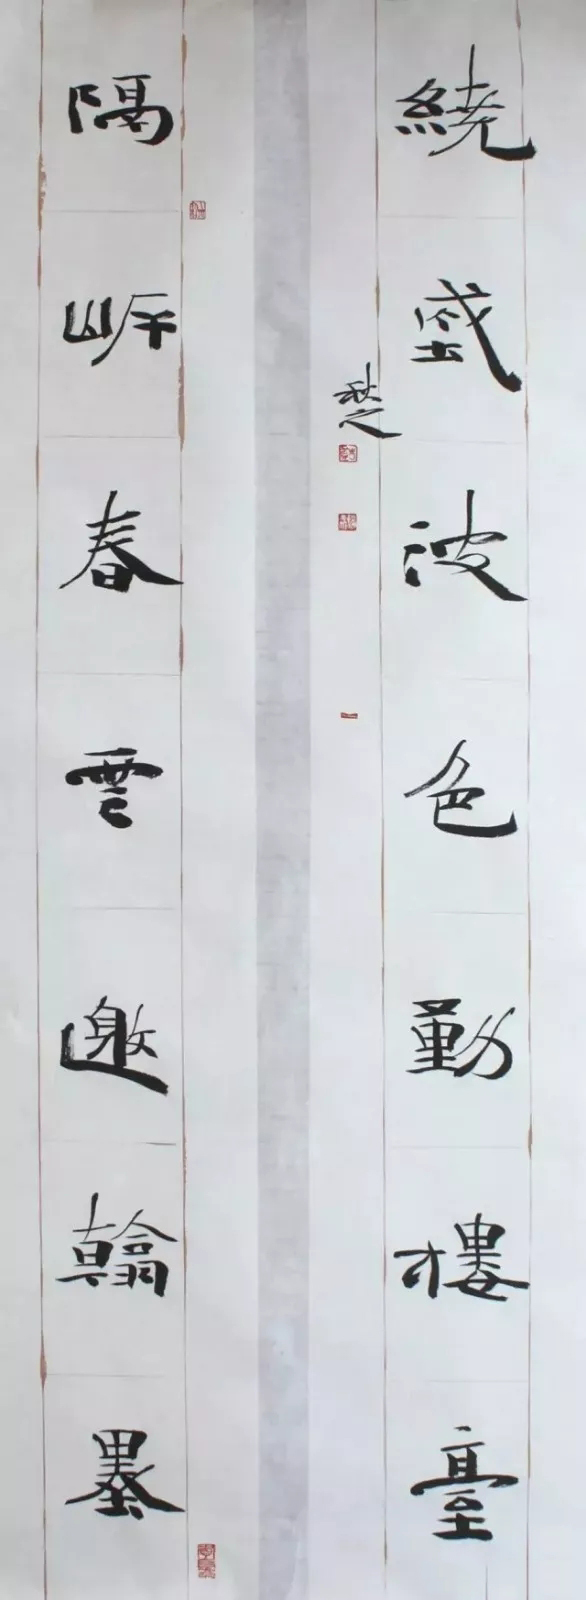 隔岍春雲邀翰墨
繞城波色動樓臺
秋之